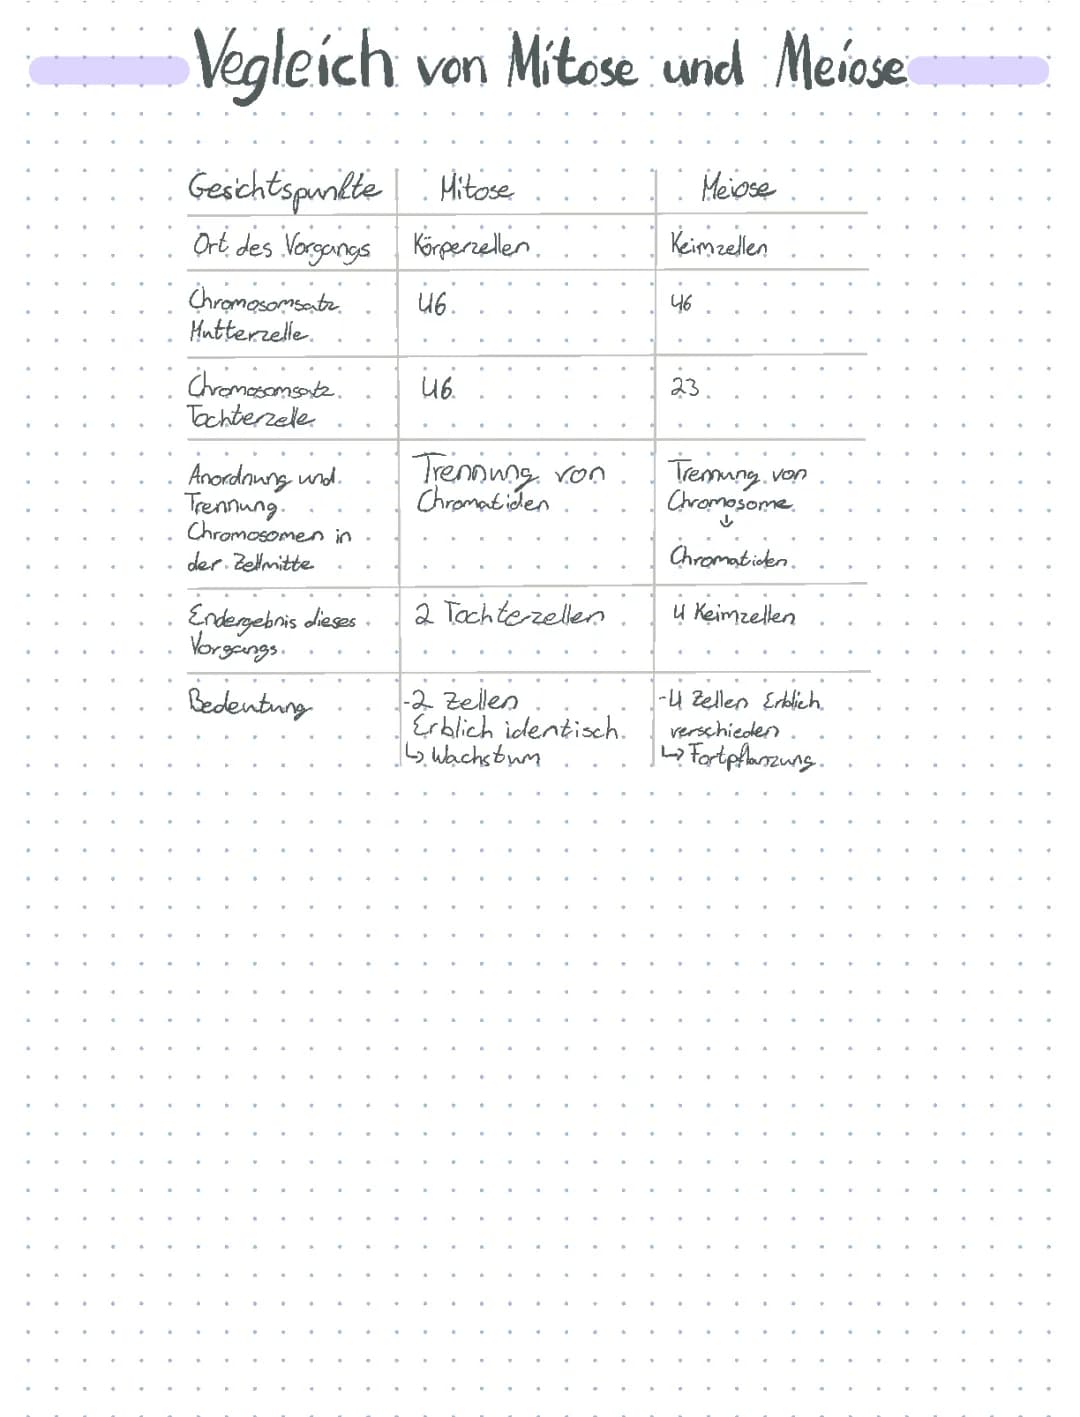 Vegleich von Mitose und Meiose
Gesichtspunkte Mitose Meiose
Ort des Vorgangs Körperzellen Keimzellen
Chromosomsatz 46 46
Mutterzelle
Chromosomsatz 46 23
Tochterzelle
Anordnung und Trennung von Trennung von
Trennung Chromatiden Chromosome
Chromosomen in ↓
der Zellmitte Chromatiden
Endergebnis dieses 2 Tochterzellen 4 Keimzellen
Vorgangs
Bedeutung -2 Zellen -4 Zellen Erblich
Erblich identisch verschieden
↳ Wachstum ↳ Fortpflanzung